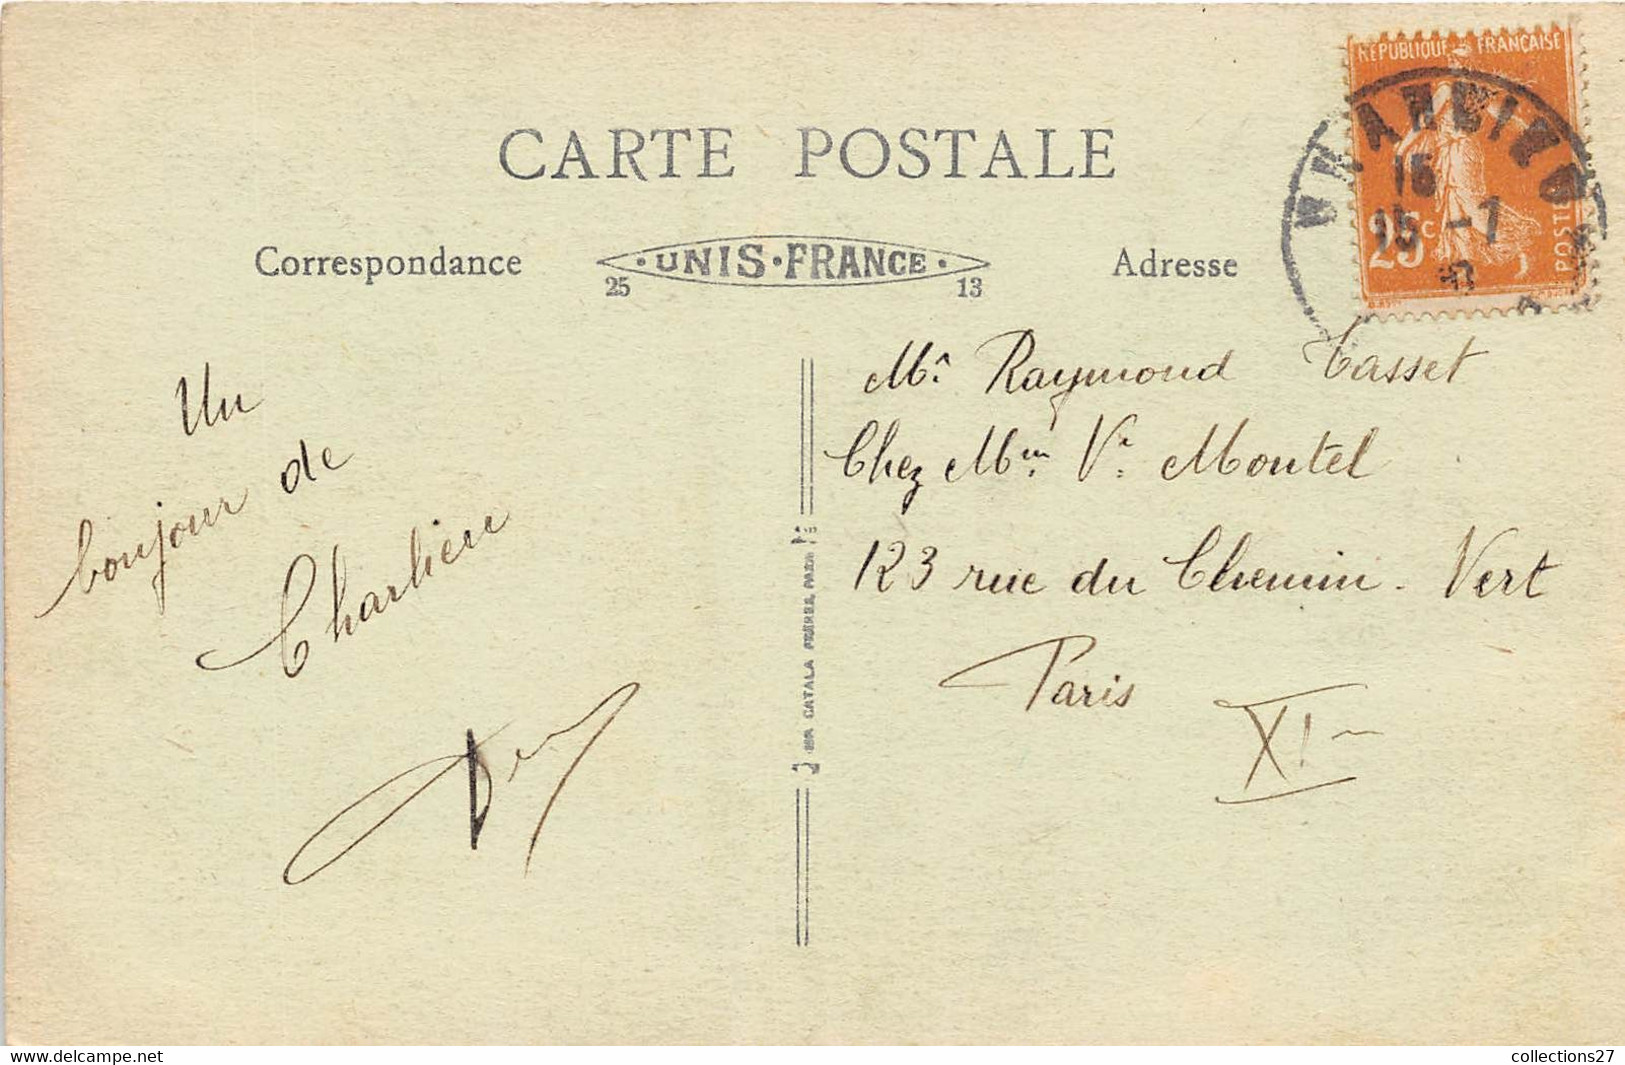 CARTE POSTALE
Correspondance
·UNIS·FRANCE·
25 13
Adresse
RÉPUBLIQUE FRANÇAISE
25c
POSTES
15
15 -7
Un
bonjour de
Charlieu
Mr. Raymond Tasset
Chez Mme Ve Montel
123 rue du Chemin-Vert
Paris XIe
CATALA FRÈRES, PARIS
www.delcampe.net
collections27